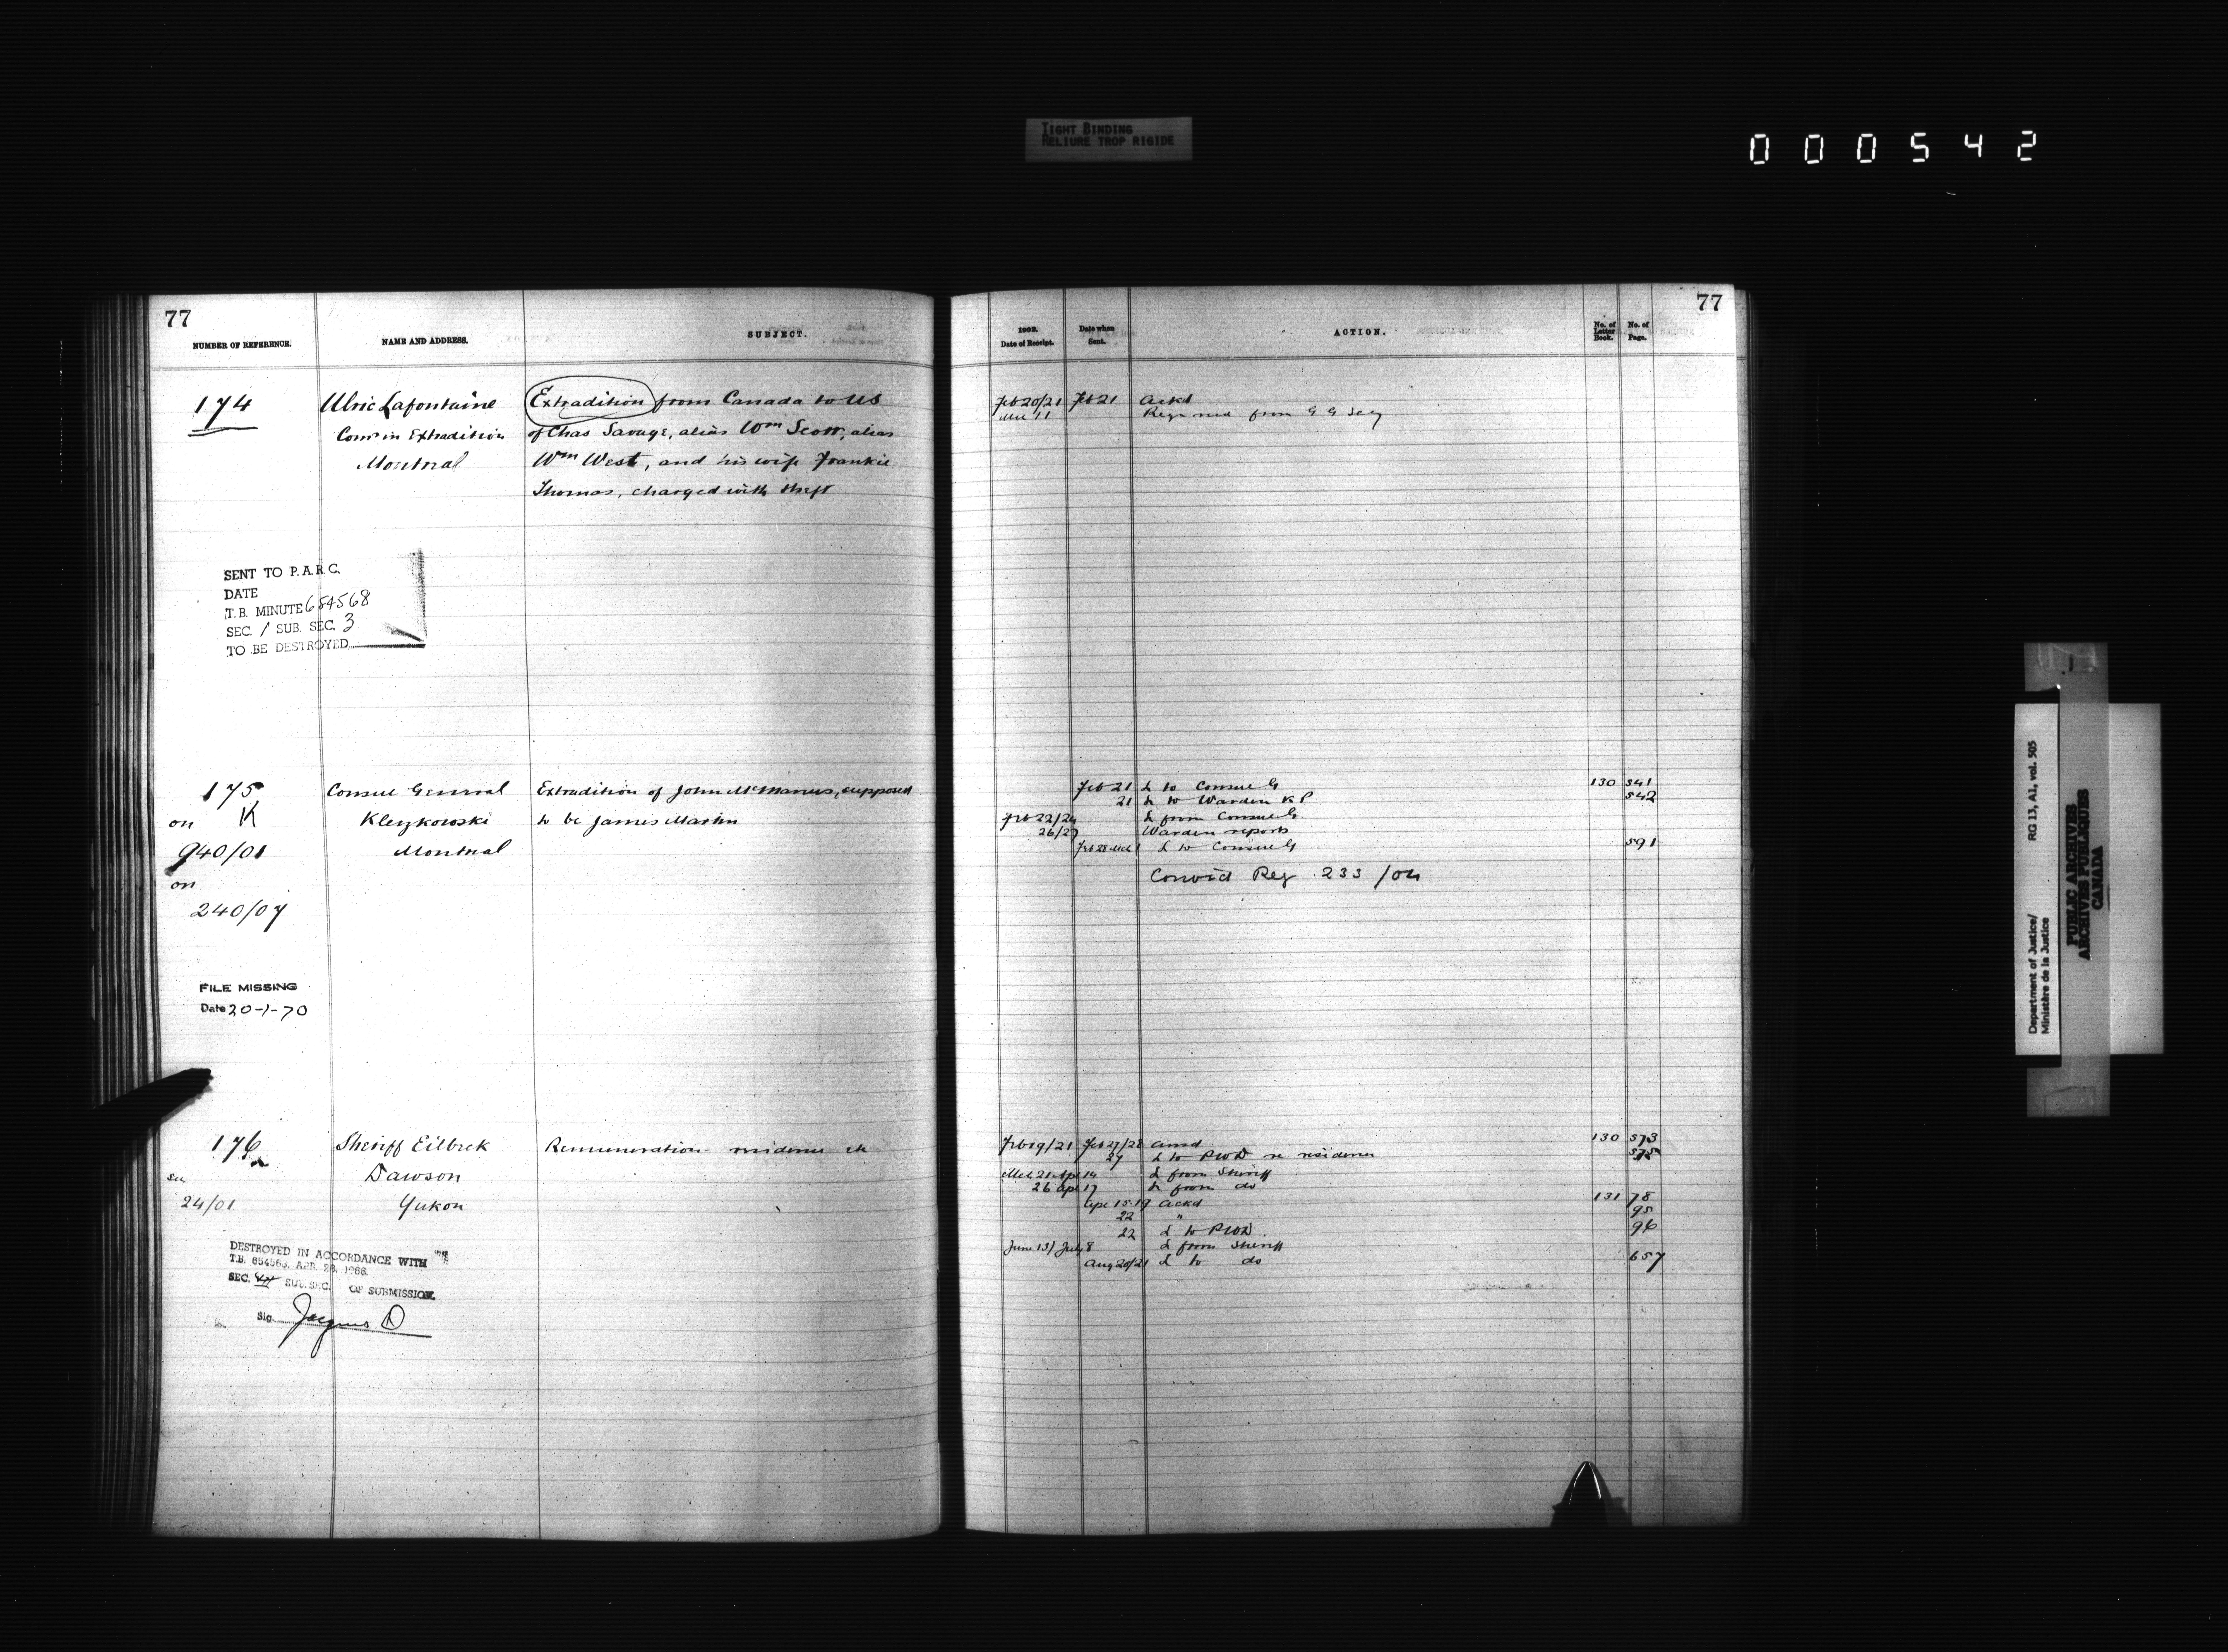 TIGHT BINDING
RELIURE TROP RIGIDE
000542
77
NUMBER OF REFERENCE.
NAME AND ADDRESS.
SUBJECT.
174
Ulric Lafontaine
Extradition from Canada to US
Comr in Extradition
of Chas Savage, alias Wm Scott, alias
Montreal
Wm West, and his wife Frankie
Thomas, charged with theft
SENT TO P.A.R.C.
DATE
T.B. MINUTE 654568
SEC. 1 SUB. SEC. 3
TO BE DESTROYED
175
Consul General
Extradition of John McManus, supposed
on K
Kleczkowski
to be James Martin
940/01
Montreal
on
240/07
FILE MISSING
Date 20-1-70
176
Sheriff Eilbeck
Remuneration residence etc
Dawson
see
24/01
Yukon
DESTROYED IN ACCORDANCE WITH
T.B. 654563, APR. 28, 1966.
SEC. SUB.SEC. OF SUBMISSION.
Sig.
77
1902.
Date of Receipt.
Date when
Sent.
ACTION.
No. of
Letter
Book.
No. of
Page.
Feb 20/21 Feb 21 Ackd
11 from G G Secy
Feb 21 L to Consul G 130 541
21 L to Warden K P 542
Feb 22/24 L from Consul G
26/27 Warden reports
Feb 28 Mch 1 L to Consul G 591
Convict Reg 233/04
Feb 19/21 Feb 27/28 Ansd 130 573
27 L to PWD re residence 575
Mch 21 Apr 14 L from Sheriff
26 Apr 17 L from do
Apr 15-19 Ackd 131 78
22 " 95
22 L to PWD. 96
June 13/ July 8 L from Sheriff
Aug 20/21 L to do 657
Department of Justice/
Ministère de la Justice
RG 13, A1, vol. 505
PUBLIC ARCHIVES
ARCHIVES PUBLIQUES
CANADA